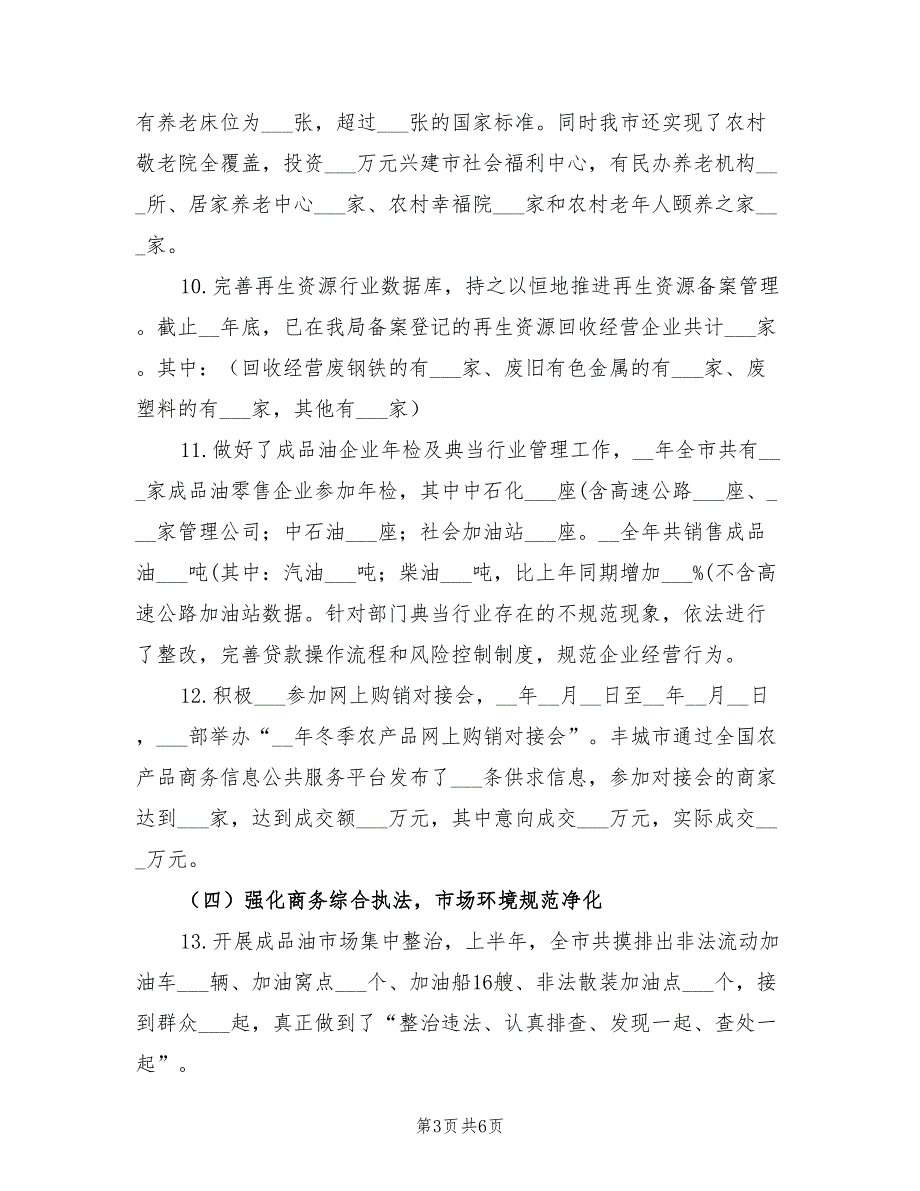 有养老床位为___张，超过___张的国家标准。同时我市还实现了农村
敬老院全覆盖，投资___万元兴建市社会福利中心，有民办养老机构__
_所、居家养老中心___家、农村幸福院___家和农村老年人颐养之家__
_家。
10.完善再生资源行业数据库，持之以恒地推进再生资源备案管理
。截止__年底，已在我局备案登记的再生资源回收经营企业共计___家
。其中：（回收经营废钢铁的有___家、废旧有色金属的有___家、废
塑料的有___家，其他有___家）
11.做好了成品油企业年检及典当行业管理工作，__年全市共有__
_家成品油零售企业参加年检，其中中石化___座(含高速公路___座、_
__家管理公司；中石油___座；社会加油站___座。__全年共销售成品
油___吨(其中：汽油___吨；柴油___吨，比上年同期增加___%(不含高
速公路加油站数据。针对部门典当行业存在的不规范现象，依法进行
了整改，完善贷款操作流程和风险控制制度，规范企业经营行为。
12.积极___参加网上购销对接会，__年__月__日至__年__月__日
，___部举办“__年冬季农产品网上购销对接会”。丰城市通过全国农
产品商务信息公共服务平台发布了___条供求信息，参加对接会的商家
达到___家，达到成交额___万元，其中意向成交___万元，实际成交__
_万元。
（四）强化商务综合执法，市场环境规范净化
13.开展成品油市场集中整治，上半年，全市共摸排出非法流动加
油车___辆、加油窝点___个、加油船16艘、非法散装加油点___个，接
到群众___起，真正做到了“整治违法、认真排查、发现一起、查处一
起”。
第3页 共6页